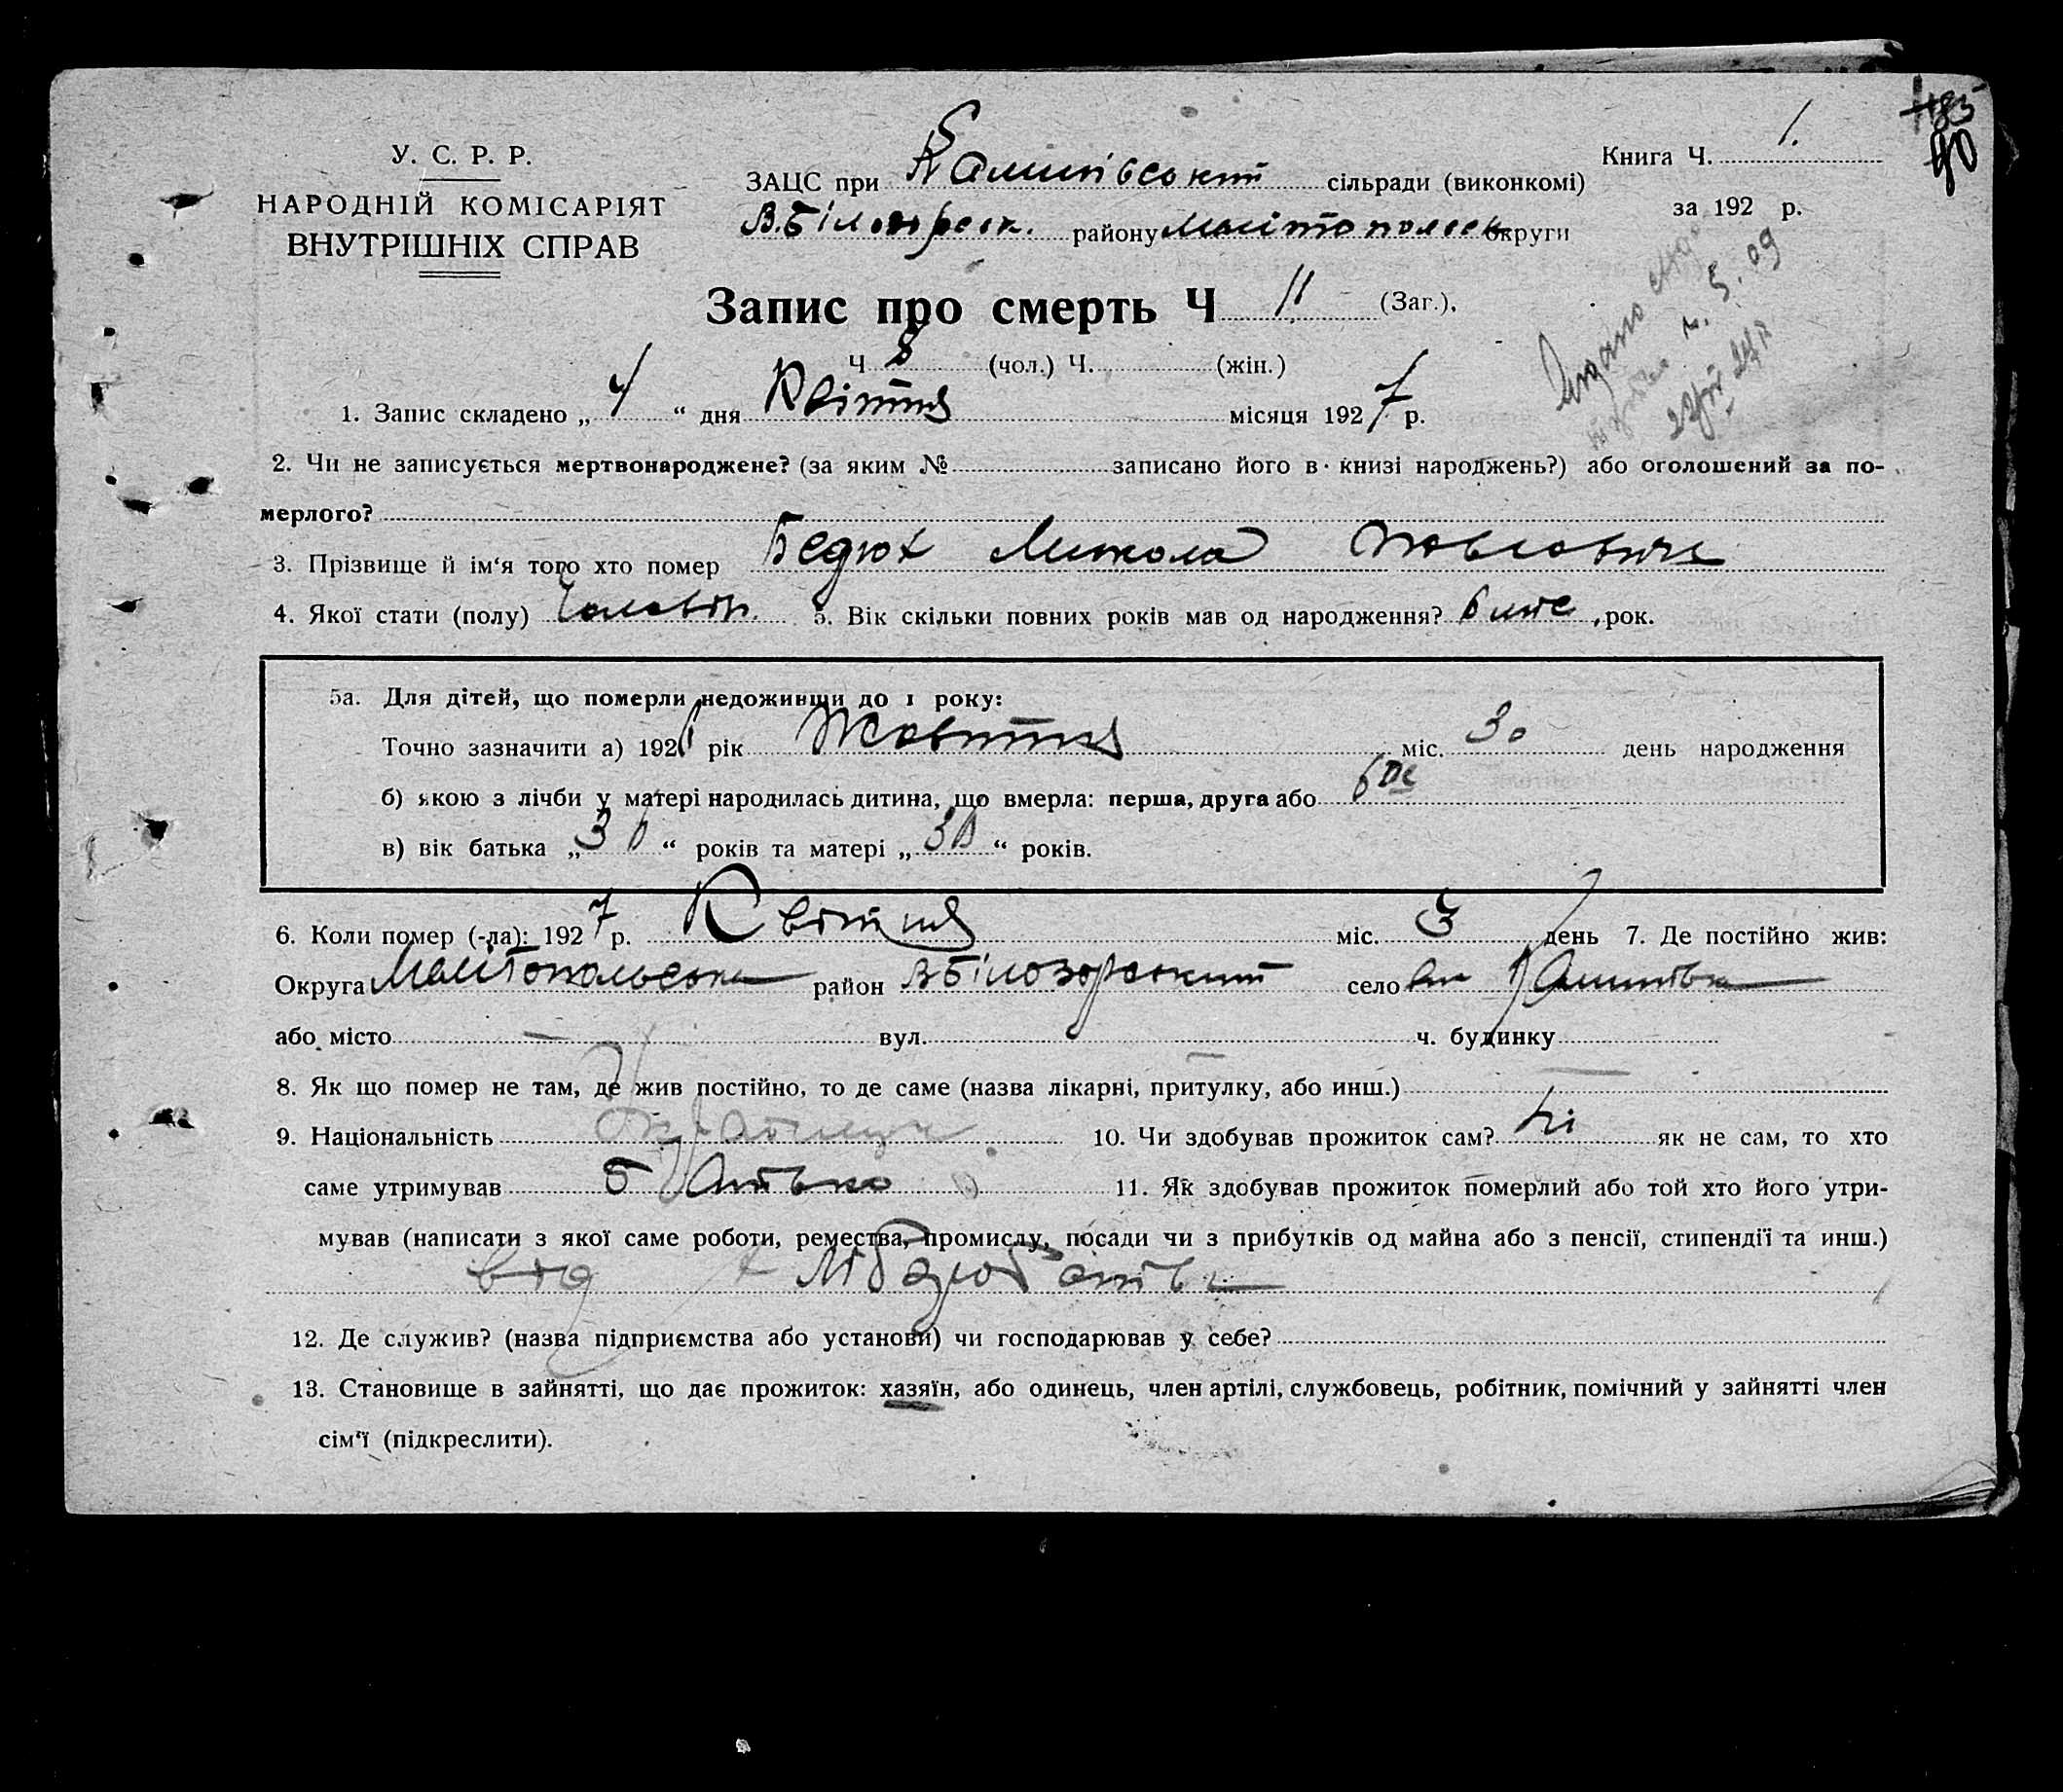 185
90
У. С. Р. Р.
НАРОДНІЙ КОМІСАРІЯТ
ВНУТРІШНІХ СПРАВ
ЗАЦС при сільради (виконкомі)
В.Білозерск. району Мелітопольск округи
Книга Ч. 1.
за 192 р.
Запис про смерть Ч 11 (Заг.).
Ч 8 (чол.) Ч. (жін.)
1. Запис складено „ 4 “ дня Квітня місяця 1927 р.
2. Чи не записується мертвонароджене? (за яким № записано його в книзі народжень?) або оголошений за по-
мерлого?
3. Прізвище й ім‘я того хто помер Бедюх Микола Павлович
4. Якої стати (полу) Чоловік. 5. Вік скільки повних років мав од народження? 6 , рок.
5а. Для дітей, що померли недоживши до 1 року:
Точно зазначити а) 1926 рік Жовтня міс. 30 день народження
б) якою з лічби у матері народилась дитина, що вмерла: перша, друга або 6
в) вік батька „ “ років та матері „ “ років.
6. Коли помер (-ла): 1927 р. Квітня міс. 3 день 7. Де постійно жив:
Округа Мелітопольська район В Білозерський село
або місто — вул. ч. будинку
8. Як що помер не там, де жив постійно, то де саме (назва лікарні, притулку, або инш.) —
9. Національність 10. Чи здобував прожиток сам? Ні як не сам, то хто
саме утримував Батько 11. Як здобував прожиток померлий або той хто його утри-
мував (написати з якої саме роботи, ремества, промислу, посади чи з прибутків од майна або з пенсії, стипендії та инш.)
від хліборобства
12. Де служив? (назва підприємства або установи) чи господарював у себе?
13. Становище в зайнятті, що дає прожиток: хазяїн, або одинець, член артілі, службовець, робітник, помічний у зайнятті член
сім‘ї (підкреслити).